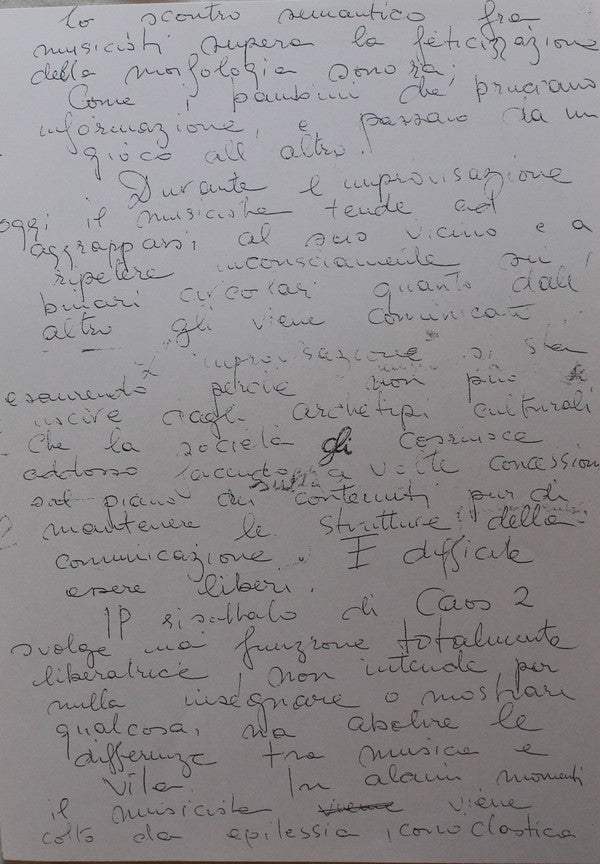 Lo scontro semantico fra
musicisti supera la feticizzazione
della morfologia sonora,
Come i bambini che bruciano
informazione, e passano da un
gioco all altro.
Durante l improvisazione
oggi il musicista tende ad
aggrapparsi al suo vicino e a
ripetere inconsciamente su i
binari circolari quanto dall'
altro gli viene comunicato.
L'improvisazione si sta
esaurendo perché non può
uscire dagli archetipi culturali
che la società gli costruisce
addosso facendo a volte concessioni
sul piano dei contenuti pur di
mantenere le strutture della
comunicazione. È difficile
essere liberi.
IP risultato di Caos 2
svolge una funzione totalmente
liberatrice, non intende per
nulla insegnare o mostrare
qualcosa, ma abolire le
differenze tra musica e
vita. In alcuni momenti
il musicista viene viene
colto da epilessia iconoclastica